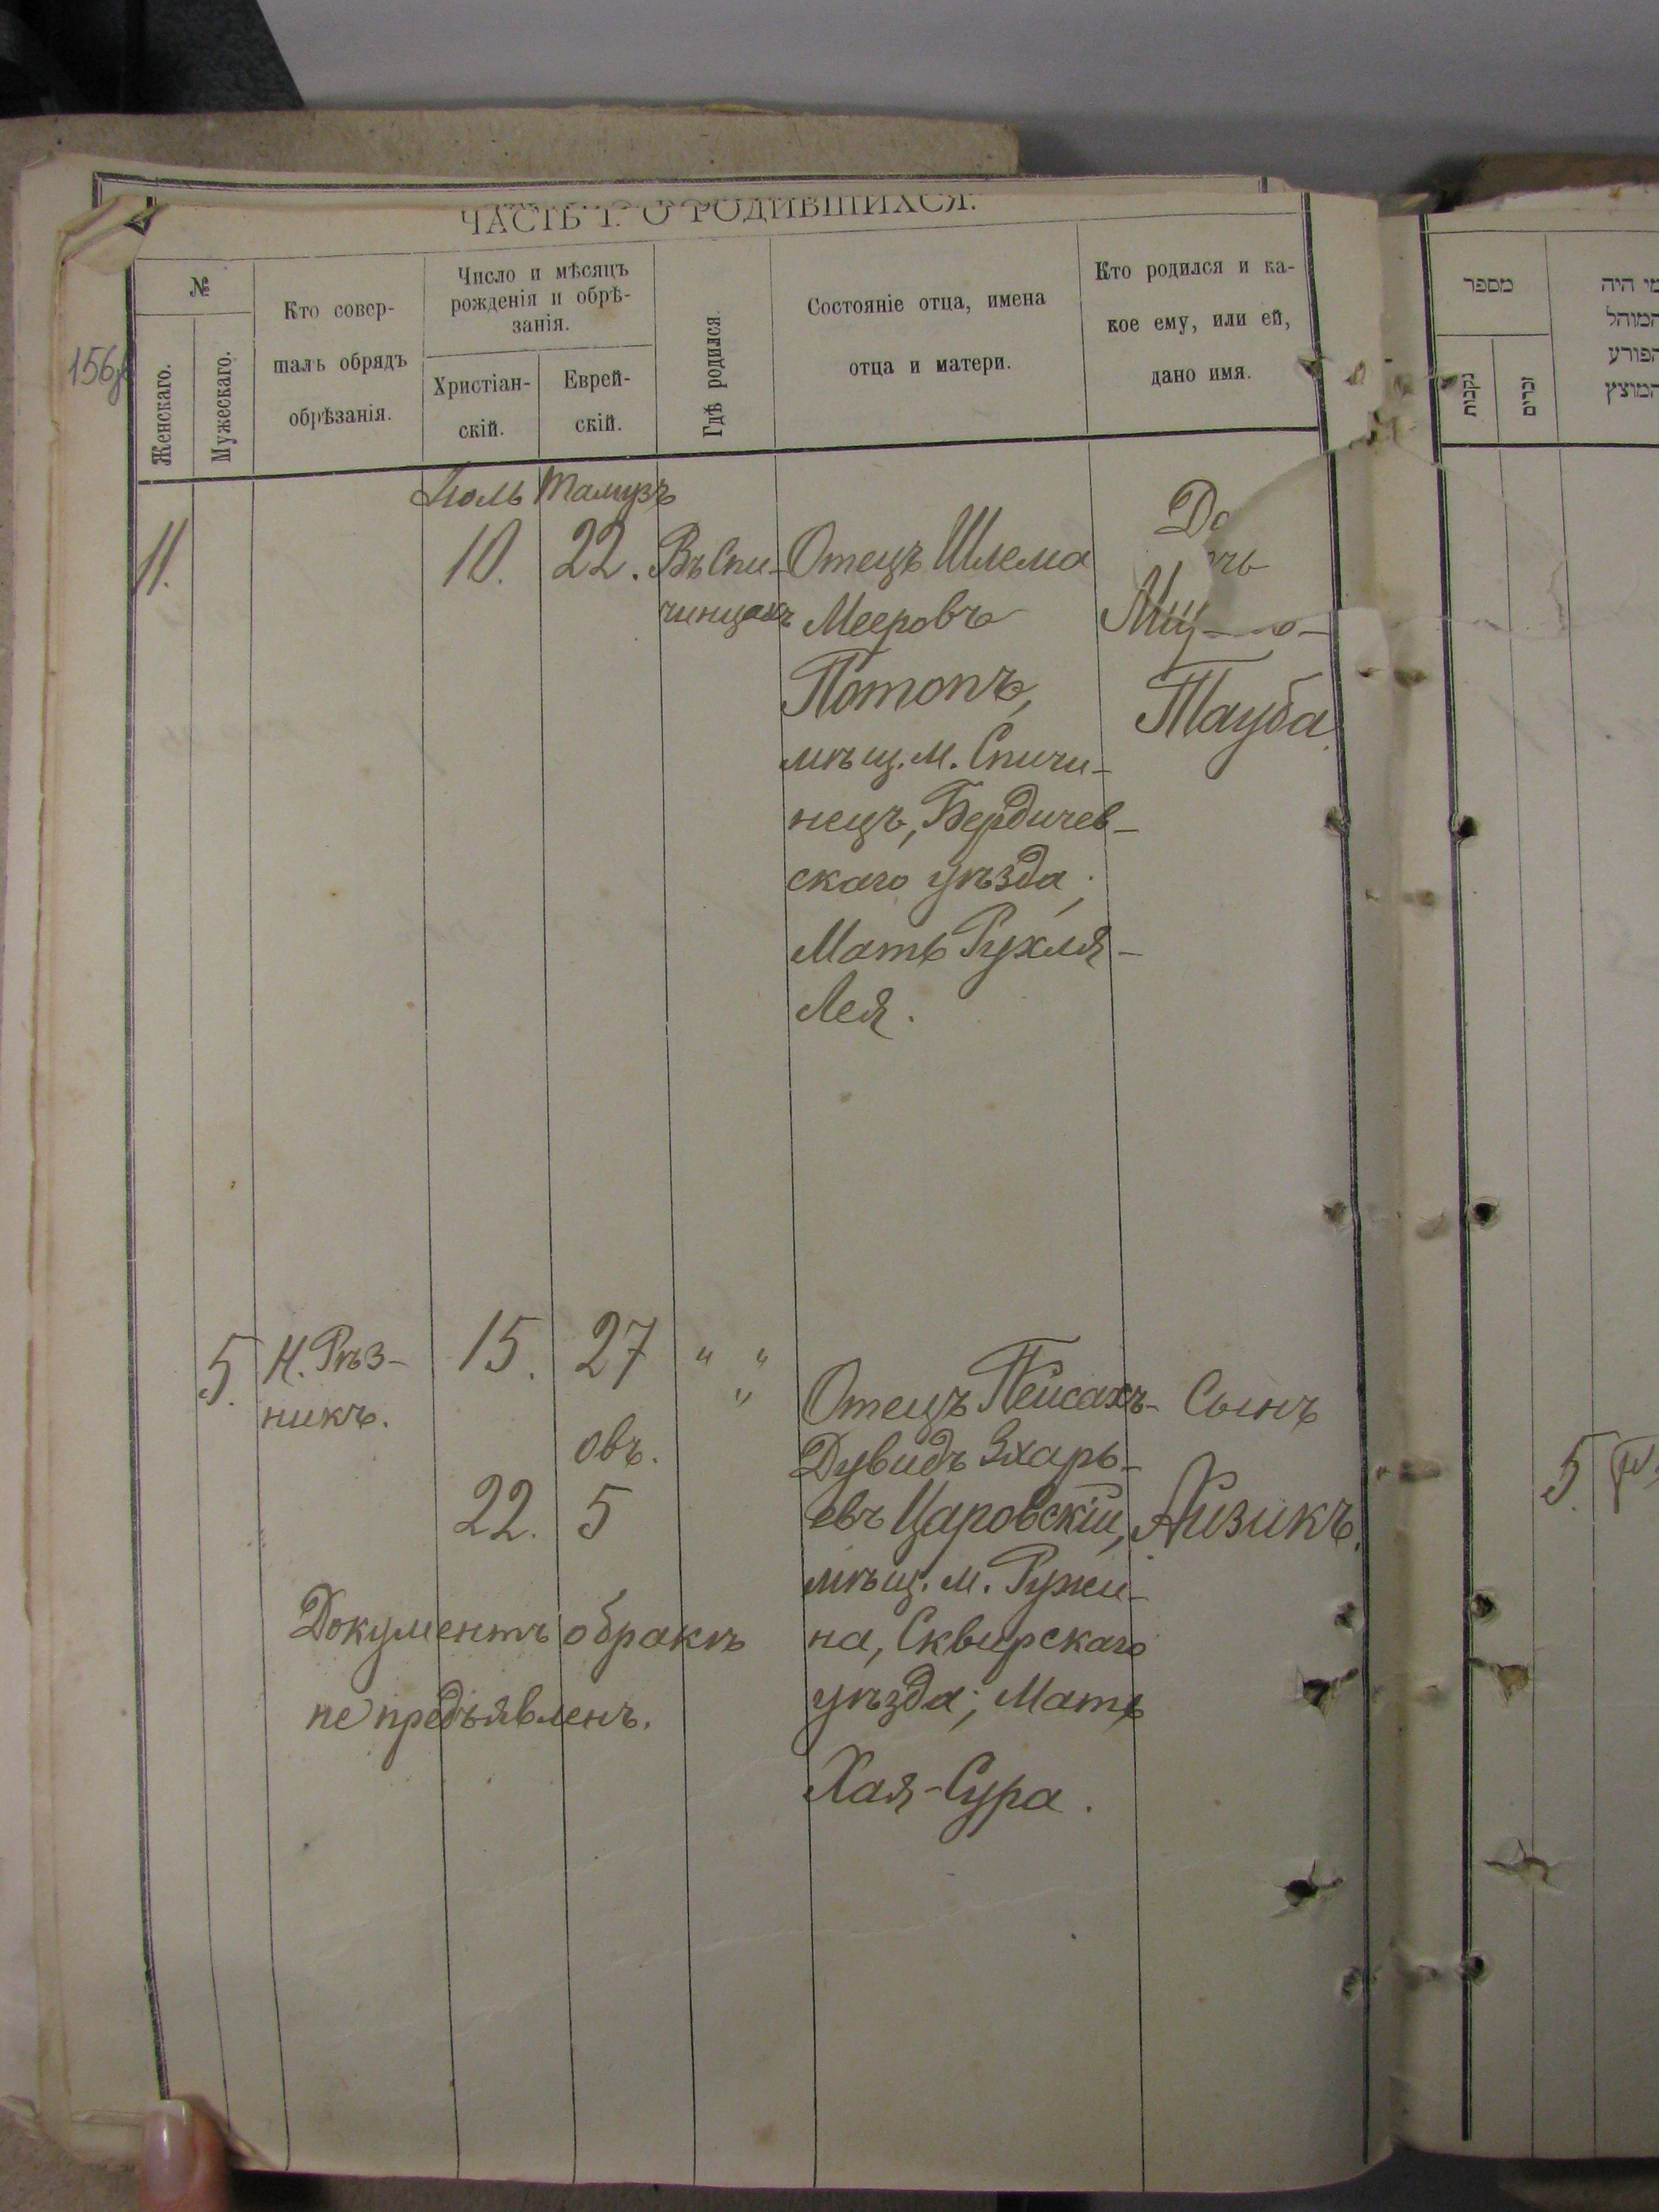 ЧАСТЬ I. О РОДИВШИХСЯ.
№
Женскаго.
Мужескаго.
Кто совер-
шалъ обрядъ
обрѣзанія.
Число и мѣсяцъ
рожденія и обрѣ-
занія.
Христіан-
скій.
Еврей-
скій.
Гдѣ родился
Состояніе отца, имена
отца и матери.
Кто родился и ка-
кое ему, или ей,
дано имя.
156
Іюль Тамузъ
11.
10.
22.
Въ Спи-
чинцахъ
Отецъ Шлема
Мееровъ
Потопъ,
мѣщ. м. Спичи-
нецъ, Бердичев-
скаго уѣзда;
Мать Рухля-
Лея.
До
чь
Тауба.
5.
Н. Рѣз-
никъ.
15.
27
" "
"
овъ.
22.
5
Отецъ Пейсахъ-
Дувидъ Зхарь-
евъ Царовскій,
мѣщ. м. Ружи-
на, Сквирскаго
уѣзда; Мать
Хая-Сура.
Сынъ
Айзикъ.
Документъ о бракѣ
не предъявленъ.
מספר
נקבות
זכרים
מי היה
המוהל
הפורע
המוצץ
5.